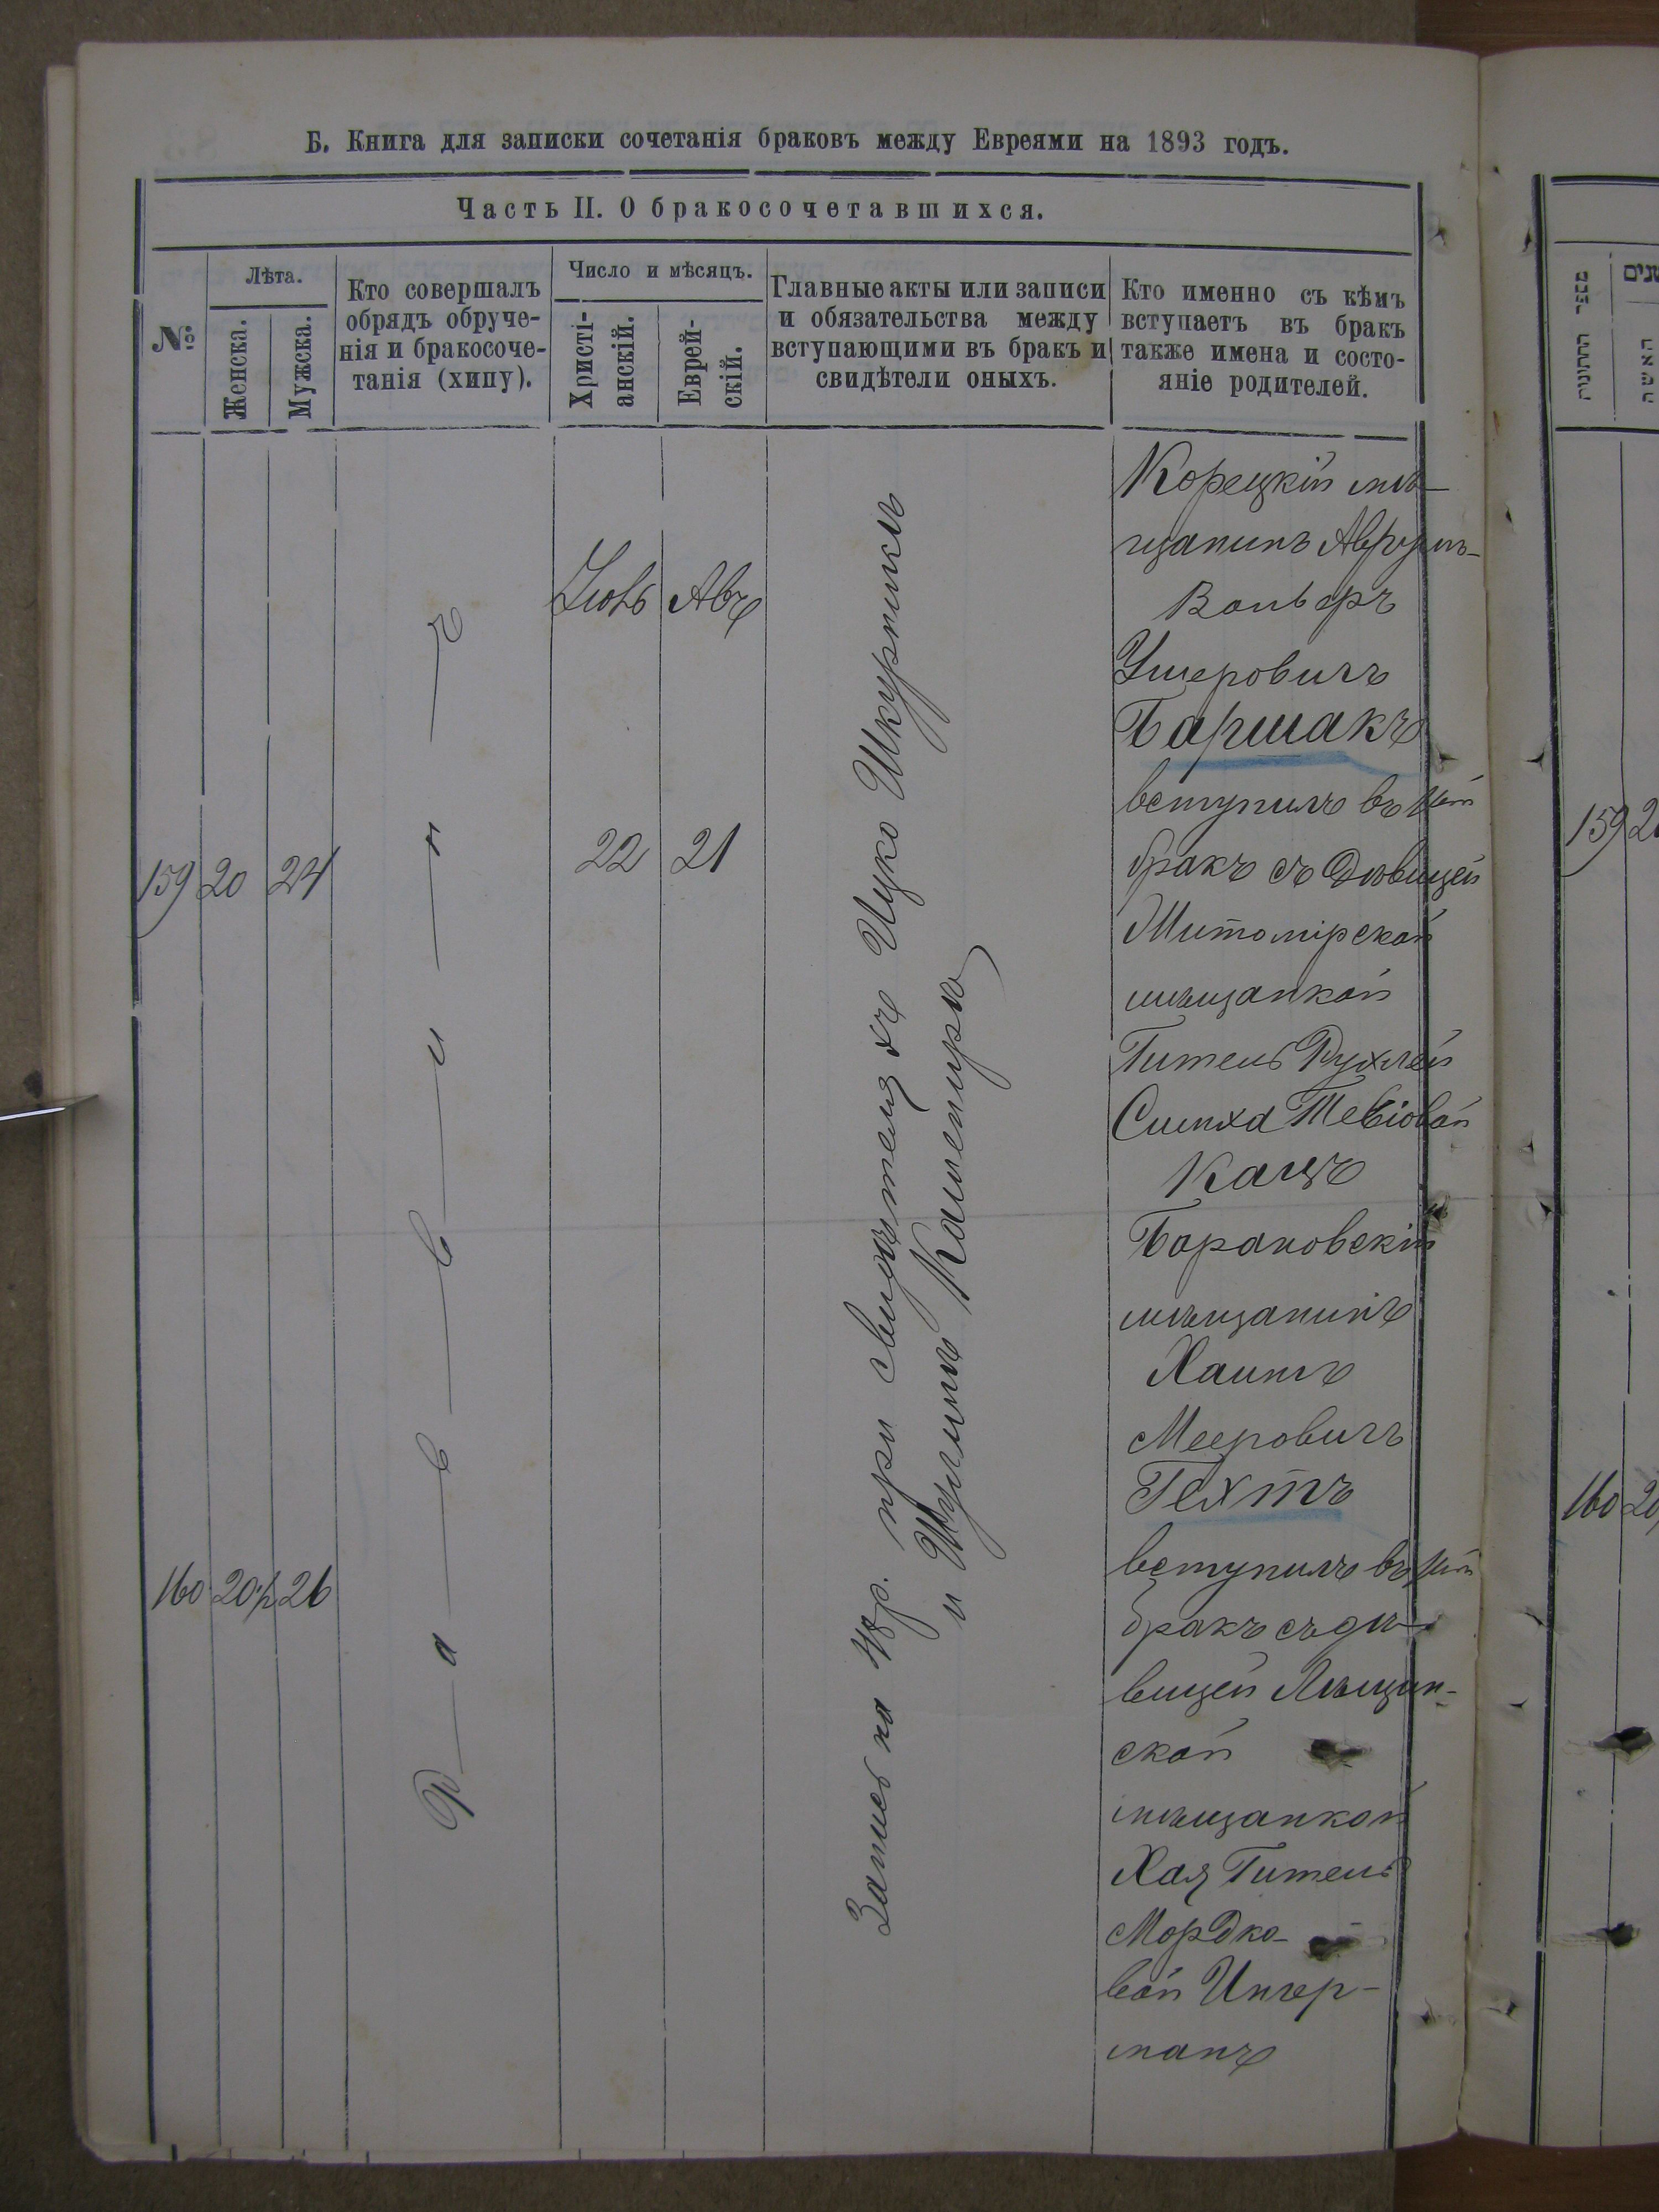 Б. Книга для записки сочетанія браковъ между Евреями на 1893 годъ.
Часть II. О бракосочетавшихся.
№
Лѣта.
Женска.
Мужска.
Кто совершалъ
обрядъ обруче-
нія и бракосоче-
танія (хипу).
Число и мѣсяцъ.
Христі-
анскій.
Еврей-
скій.
Главные акты или записи
и обязательства между
вступающими въ бракъ и
свидѣтели оныхъ.
Кто именно съ кѣмъ
вступаетъ въ бракъ
также имена и состо-
яніе родителей.
159
20
24
Раввинъ
Іюль
22
Авъ
21
Запись на 48р. при свидѣтеляхъ Ицко Шкурникъ
и Шулимъ Камениръ
Корецкій мѣ-
щанинъ Аврумъ-
Вольфъ
Ушеровичъ
Баршакъ
вступилъ въ 1й
бракъ съ Дѣвицей
Житомірской
мѣщанкой
Гитель Рухлей
Симха Тевіовой
Кацъ
160
20
26
Барановскій
мѣщанинъ
Хаимъ
Мееровичъ
Гехтъ
вступилъ въ 1й
бракъ съ дѣ-
вицей
ской
мѣщанкой
Хая Гитель
Мордко-
вой Ингер-
манъ
מספר החתונות
האשה
159
160